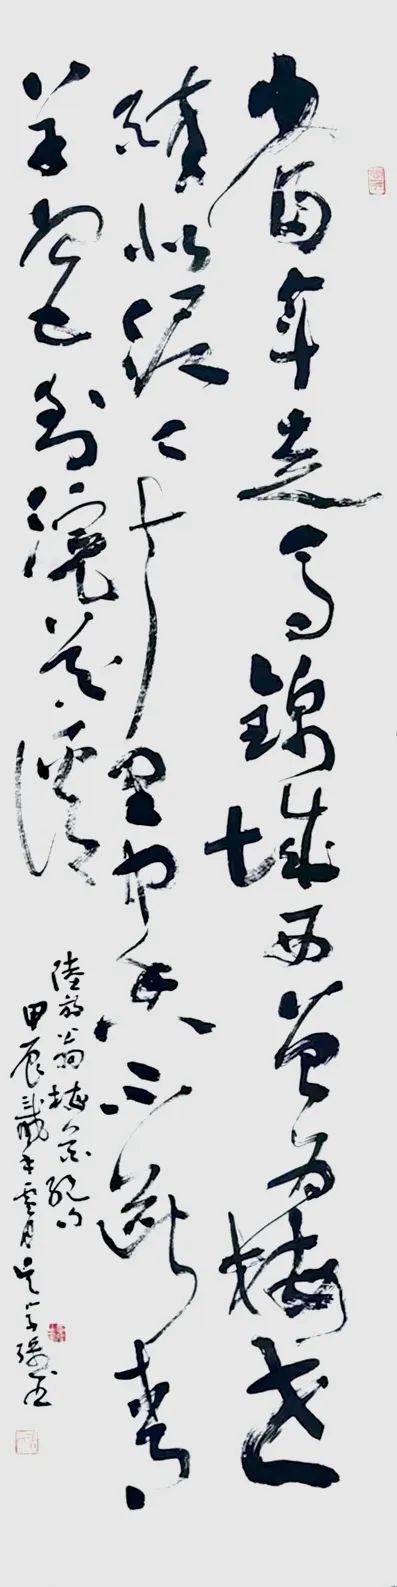 當年走馬錦城西曾為梅花
醉似泥二十里中香不斷青
羊宮到浣花溪
陸放翁梅花絕句
甲辰歲